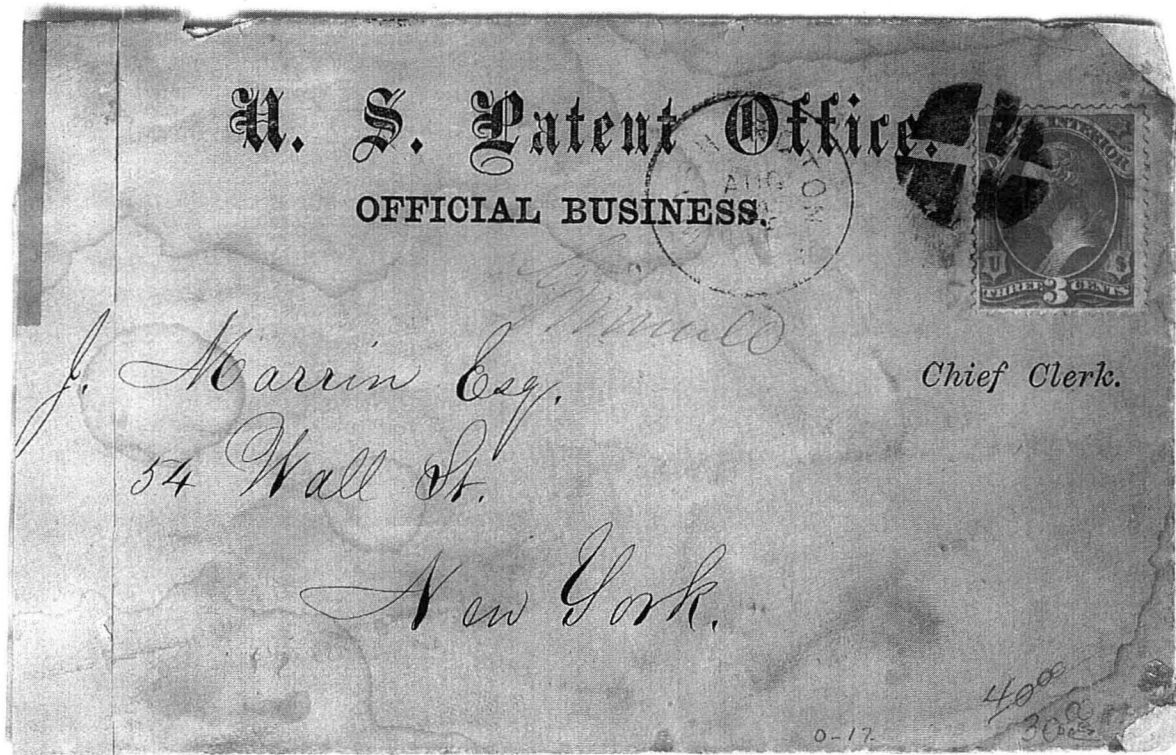 U. S. Patent Office.
OFFICIAL BUSINESS.
AUG
INTERIOR
U S
THREE 3 CENTS
Chief Clerk.
J. Marrin Esq.
54 Wall St.
New York.
40 00
30 00
O-17